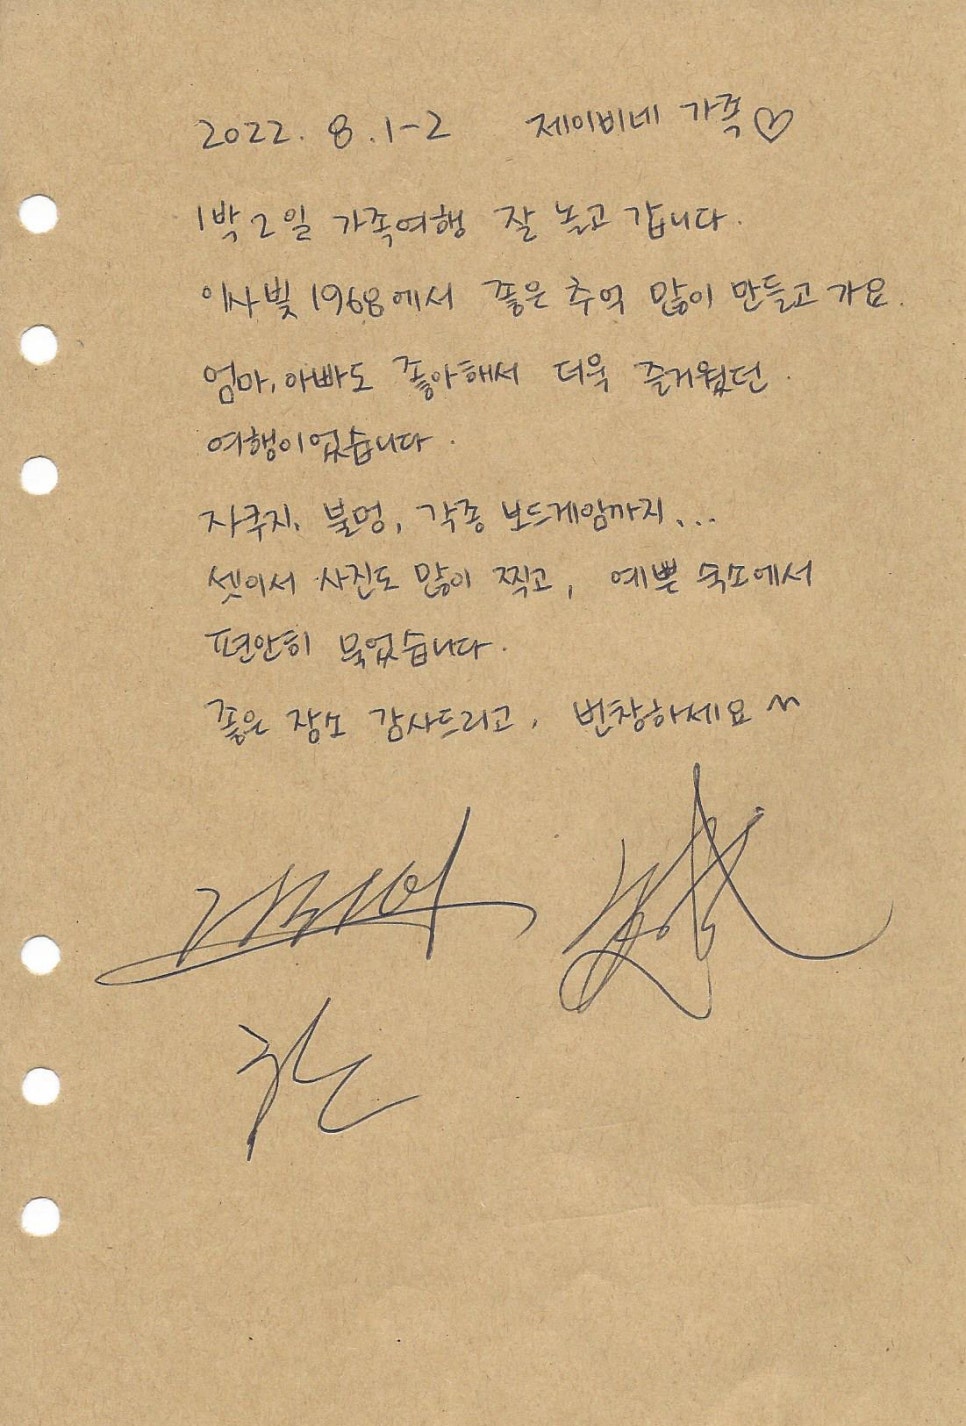 2022. 8. 1-2 제이비네 가족♡
1박 2일 가족여행 잘 놀고 갑니다.
이사빛 1968에서 좋은 추억 많이 만들고 가요.
엄마, 아빠도 좋아해서 더욱 즐거웠던
여행이었습니다.
자쿠지, 불멍, 각종 보드게임까지...
셋이서 사진도 많이 찍고, 예쁜 숙소에서
편안히 묵었습니다.
좋은 장소 감사드리고, 번창하세요^^